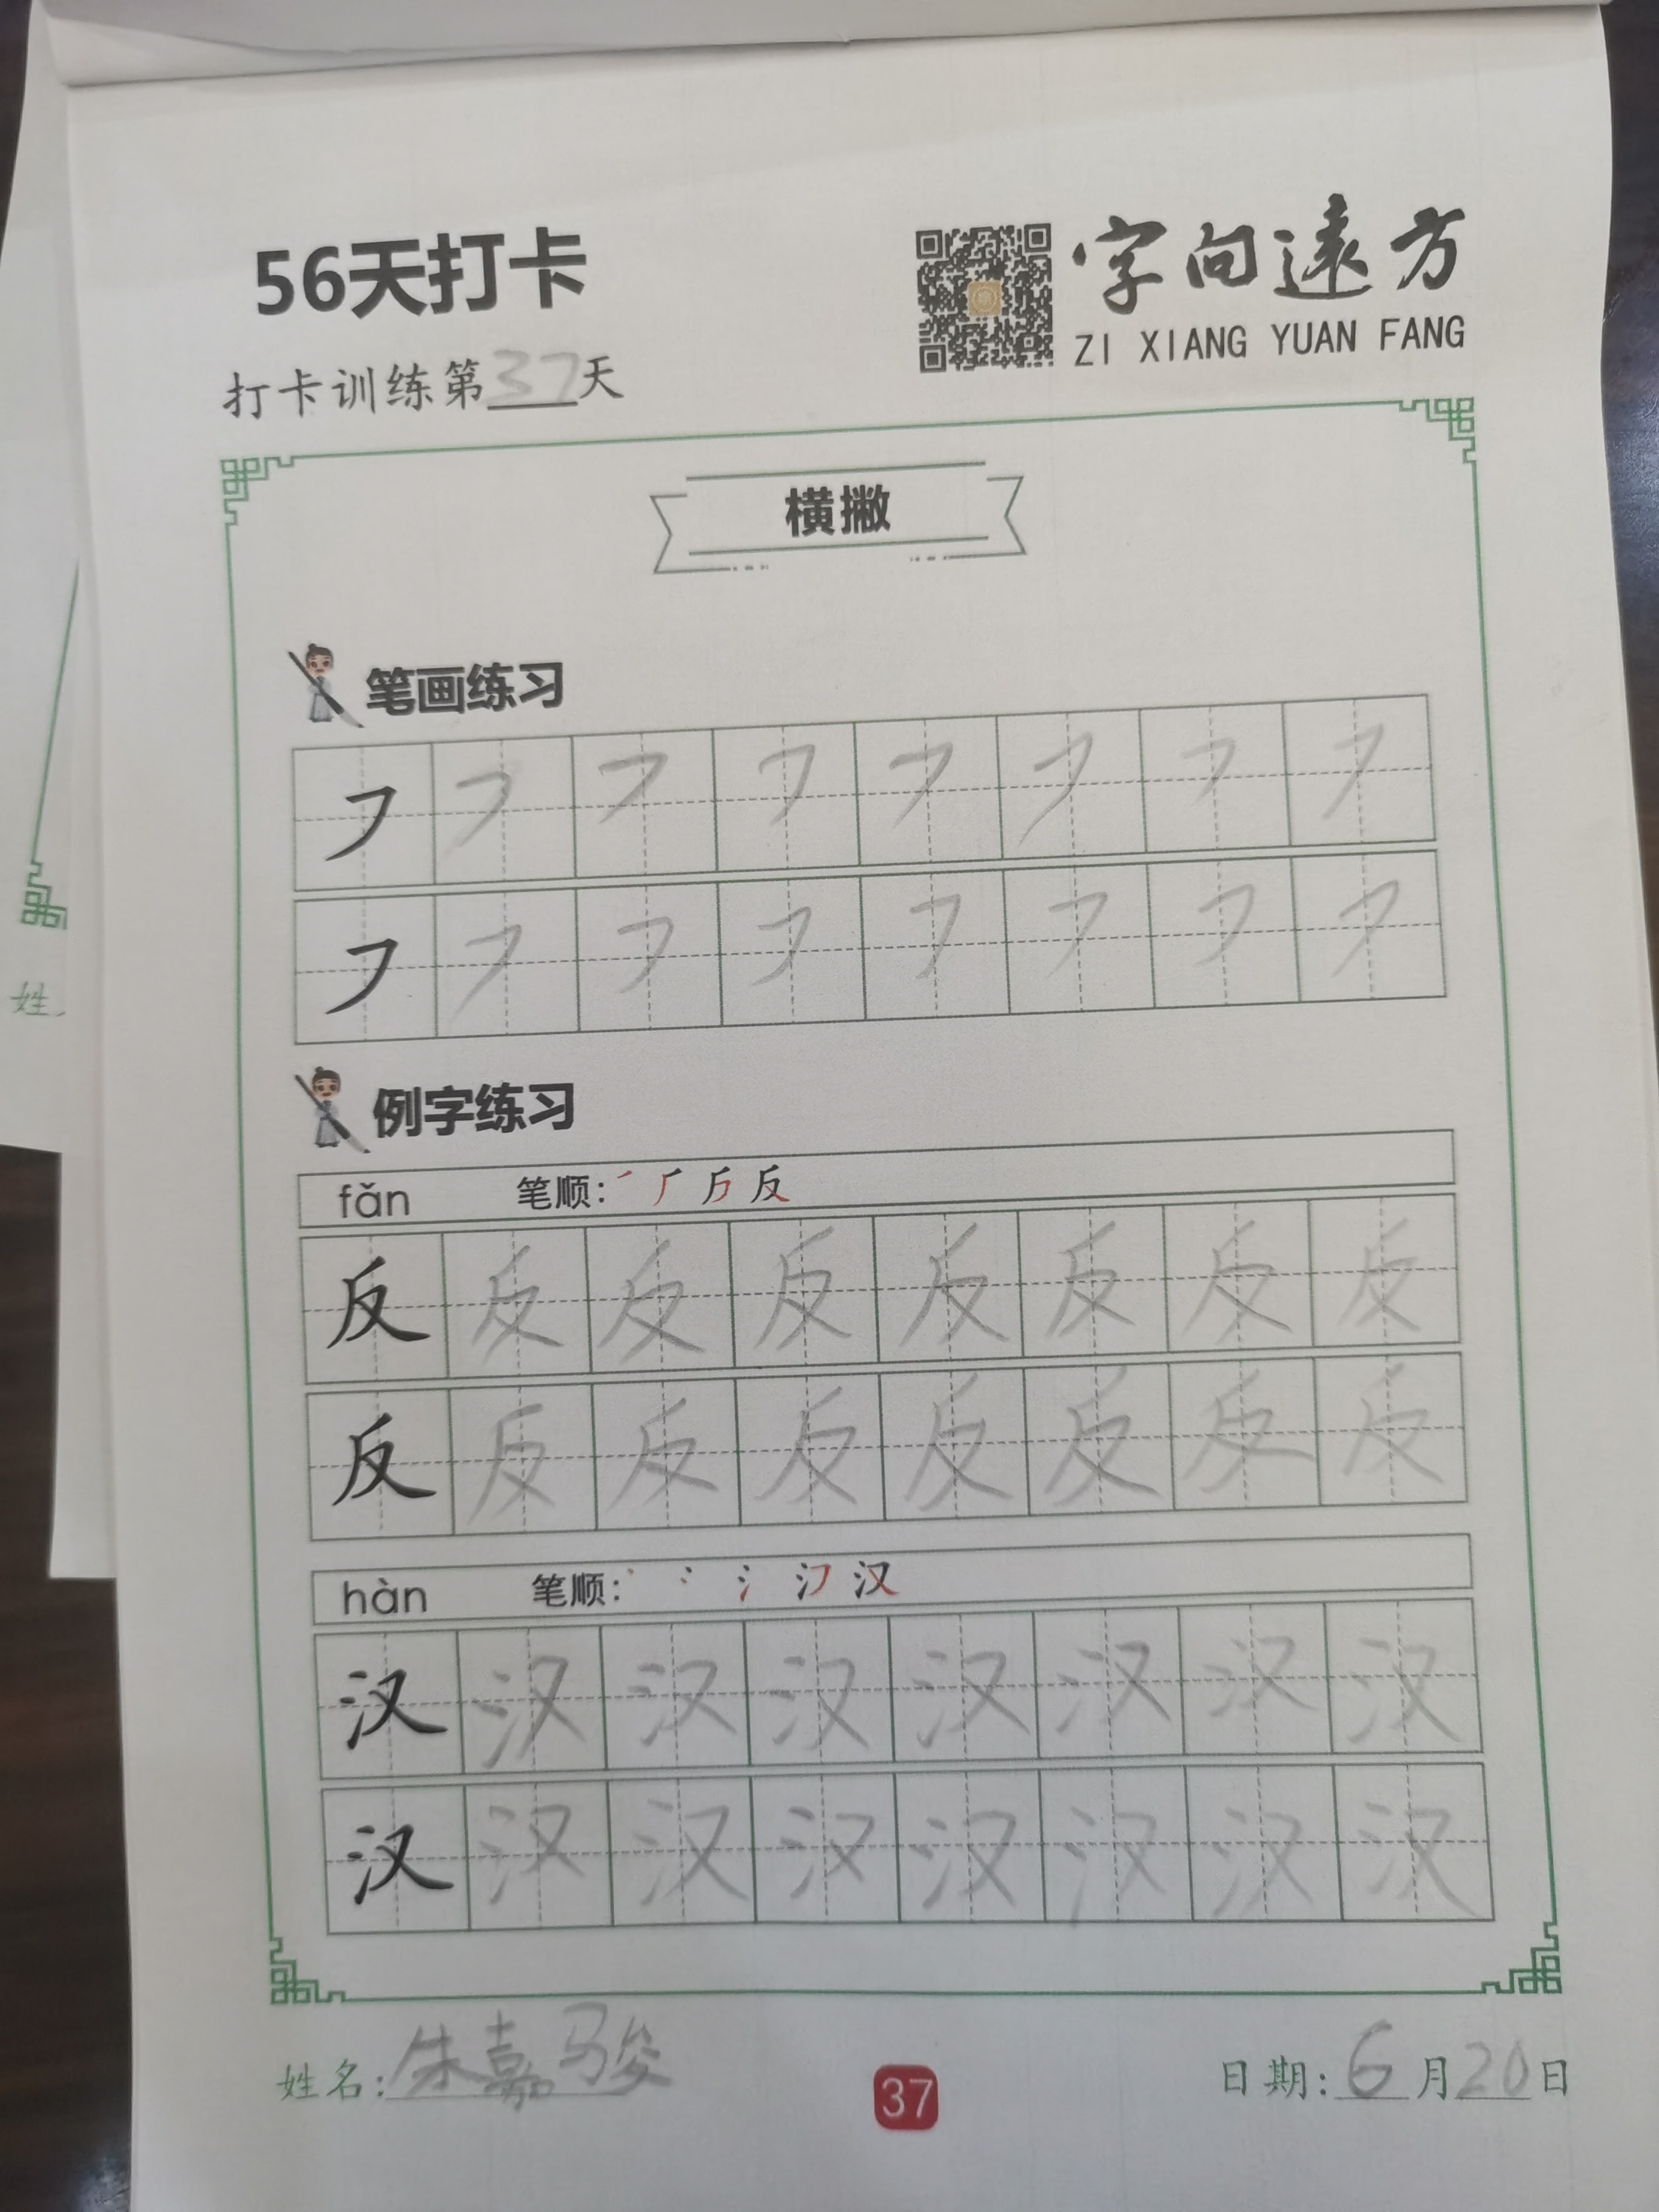 56天打卡
字向遠方
ZI XIANG YUAN FANG
打卡训练第37天
横撇
笔画练习
㇇ ㇇ ㇇ ㇇ ㇇ ㇇ ㇇ ㇇
㇇ ㇇ ㇇ ㇇ ㇇ ㇇ ㇇ ㇇
例字练习
fǎn 笔顺: 反
反 反 反 反 反 反 反 反
反 反 反 反 反 反 反 反
hàn 笔顺: 丶 冫 氵 汉
汉 汉 汉 汉 汉 汉 汉 汉
汉 汉 汉 汉 汉 汉 汉 汉
姓名:朱嘉骏
37
日期:6月20日
姓